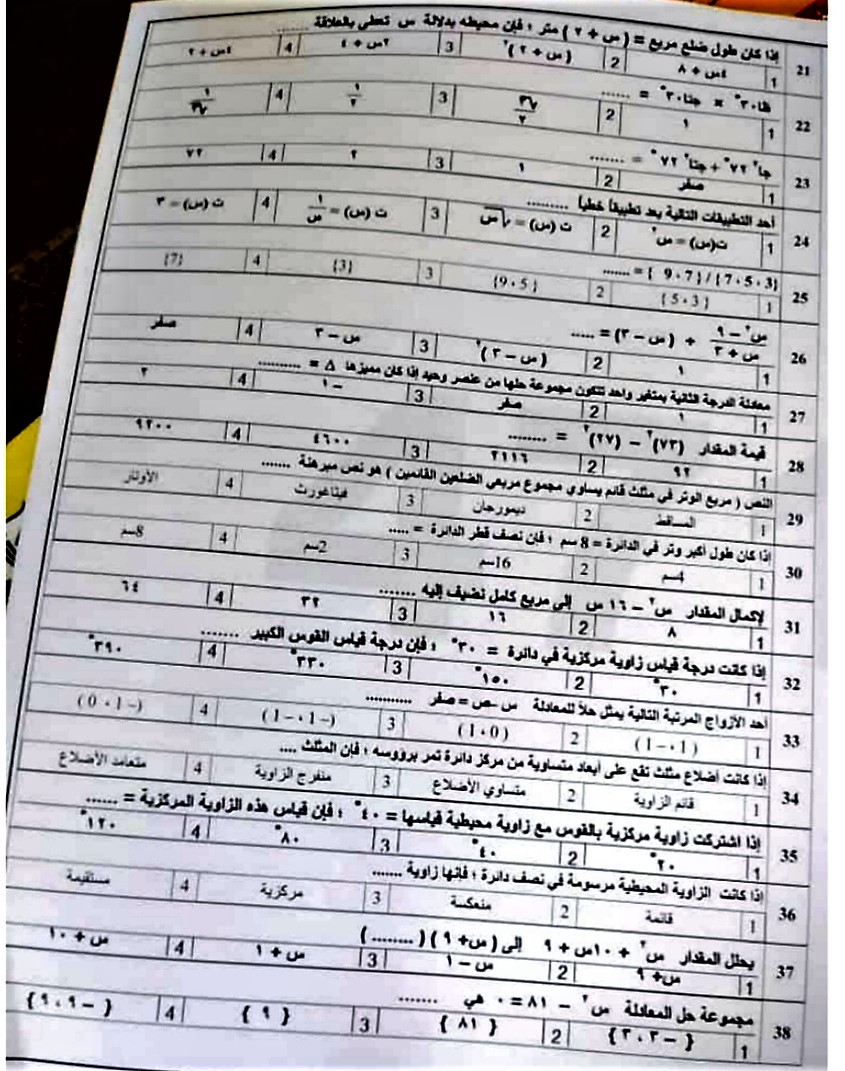 21 إذا كان طول ضلع مربع = ( س + ٢ ) متر ؛ فإن محيطه بدلالة س تعطى بالعلاقة ......
1 ٤س + ٨ 2 ( س + ٢ )² 3 ٢س + ٤ 4 ٤س + ٢
22 ظا٣٠° × جتا٣٠° = ......
1 ١ 2 √٣/٢ 3 ١/٢ 4 ١/√٣
23 جا² ٧٢° + جتا² ٧٢° = .......
1 صفر 2 ١ 3 ٢ 4 ٧٢
24 أحد التطبيقات التالية يعد تطبيقاً خطياً .........
1 ت(س) = س² 2 ت (س) = √س 3 ت (س) = ١/س 4 ت (س) = ٣
25 {3 ، 5 ، 7} / {7 ، 9 } = ......
1 { 3 ، 5 } 2 { 5 ، 9} 3 {3} 4 {7}
26 س² – ٩ / س + ٣ ÷ (س – ٣) = .....
1 ١ 2 ( س – ٣ )² 3 س – ٣ 4 صفر
27 معادلة الدرجة الثانية بمتغير واحد تتكون مجموعة حلها من عنصر وحيد إذا كان مميزها Δ = ..........
1 ١ 2 صفر 3 – ١ 4 ٢
28 قيمة المقدار (٧٣)² – (٢٧)² = ........
1 ٩٢ 2 ٢١١٦ 3 ٤٦٠٠ 4 ٩٢٠٠
29 النص ( مربع الوتر في مثلث قائم يساوي مجموع مربعي الضلعين القائمين ) هو نص مبرهنة .......
1 المساقط 2 ديمورجان 3 فيثاغورث 4 الأوتار
30 إذا كان طول أكبر وتر في الدائرة = 8 سم ؛ فإن نصف قطر الدائرة = .....
1 4سم 2 16سم 3 2سم 4 8سم
31 لإكمال المقدار س² – ١٦ س إلى مربع كامل نضيف إليه .......
1 ٨ 2 ١٦ 3 ٣٢ 4 ٦٤
32 إذا كانت درجة قياس زاوية مركزية في دائرة = ٣٠° ؛ فإن درجة قياس القوس الكبير .......
1 ٣٠° 2 ١٥٠° 3 ٣٣٠° 4 ٣٩٠°
33 أحد الأزواج المرتبة التالية يمثل حلاً للمعادلة س – ص = صفر ...........
1 (1 ، –1) 2 (0 ، 1) 3 (–1 ، –1) 4 (–1 ، 0)
34 إذا كانت أضلاع مثلث تقع على أبعاد متساوية من مركز دائرة تمر برؤوسه ؛ فإن المثلث ....
1 قائم الزاوية 2 متساوي الأضلاع 3 منفرج الزاوية 4 متعامد الأضلاع
35 إذا اشتركت زاوية مركزية بالقوس مع زاوية محيطية قياسها = ٤٠° ؛ فإن قياس هذه الزاوية المركزية = ......
1 ٢٠° 2 ٤٠° 3 ٨٠° 4 ١٢٠°
36 إذا كانت الزاوية المحيطية مرسومة في نصف دائرة ؛ فإنها زاوية .......
1 قائمة 2 منعكسة 3 مركزية 4 مستقيمة
37 يحلل المقدار س² + ١٠س + ٩ إلى ( س+ ٩ ) ( ........ )
1 س+ ٩ 2 س – ١ 3 س + ١ 4 س + ١٠
38 مجموعة حل المعادلة س² – ٨١ = ٠ هي ........
1 { – ٣ ، ٣ } 2 { ٨١ } 3 { ٩ } 4 { – ٩ ، ٩ }